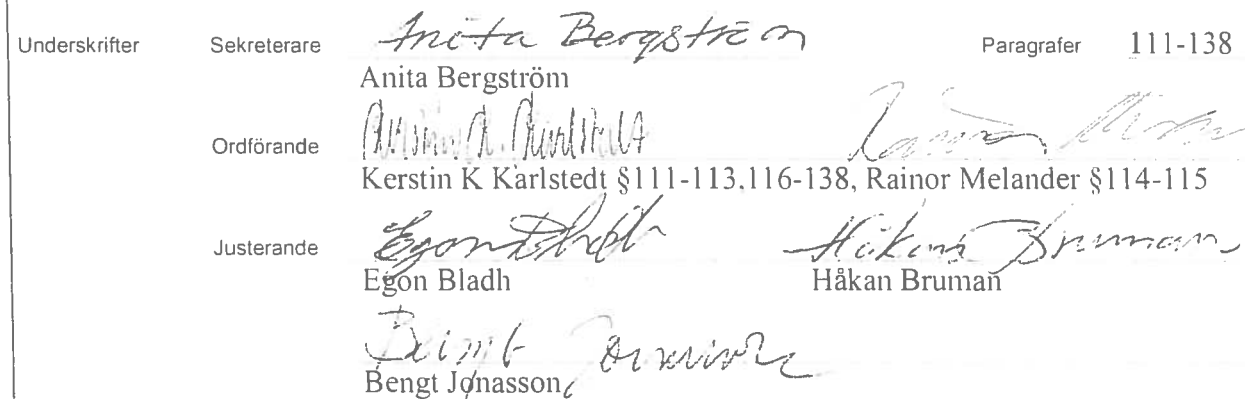 Underskrifter Sekreterare Anita Bergström Paragrafer 111-138
Anita Bergström
Ordförande Kerstin K. Karlstedt
Kerstin K Karlstedt §111-113,116-138, Rainor Melander §114-115
Justerande Egon Bladh Håkan Bruman
Egon Bladh Håkan Bruman
Bengt Jonasson
Bengt Jonasson